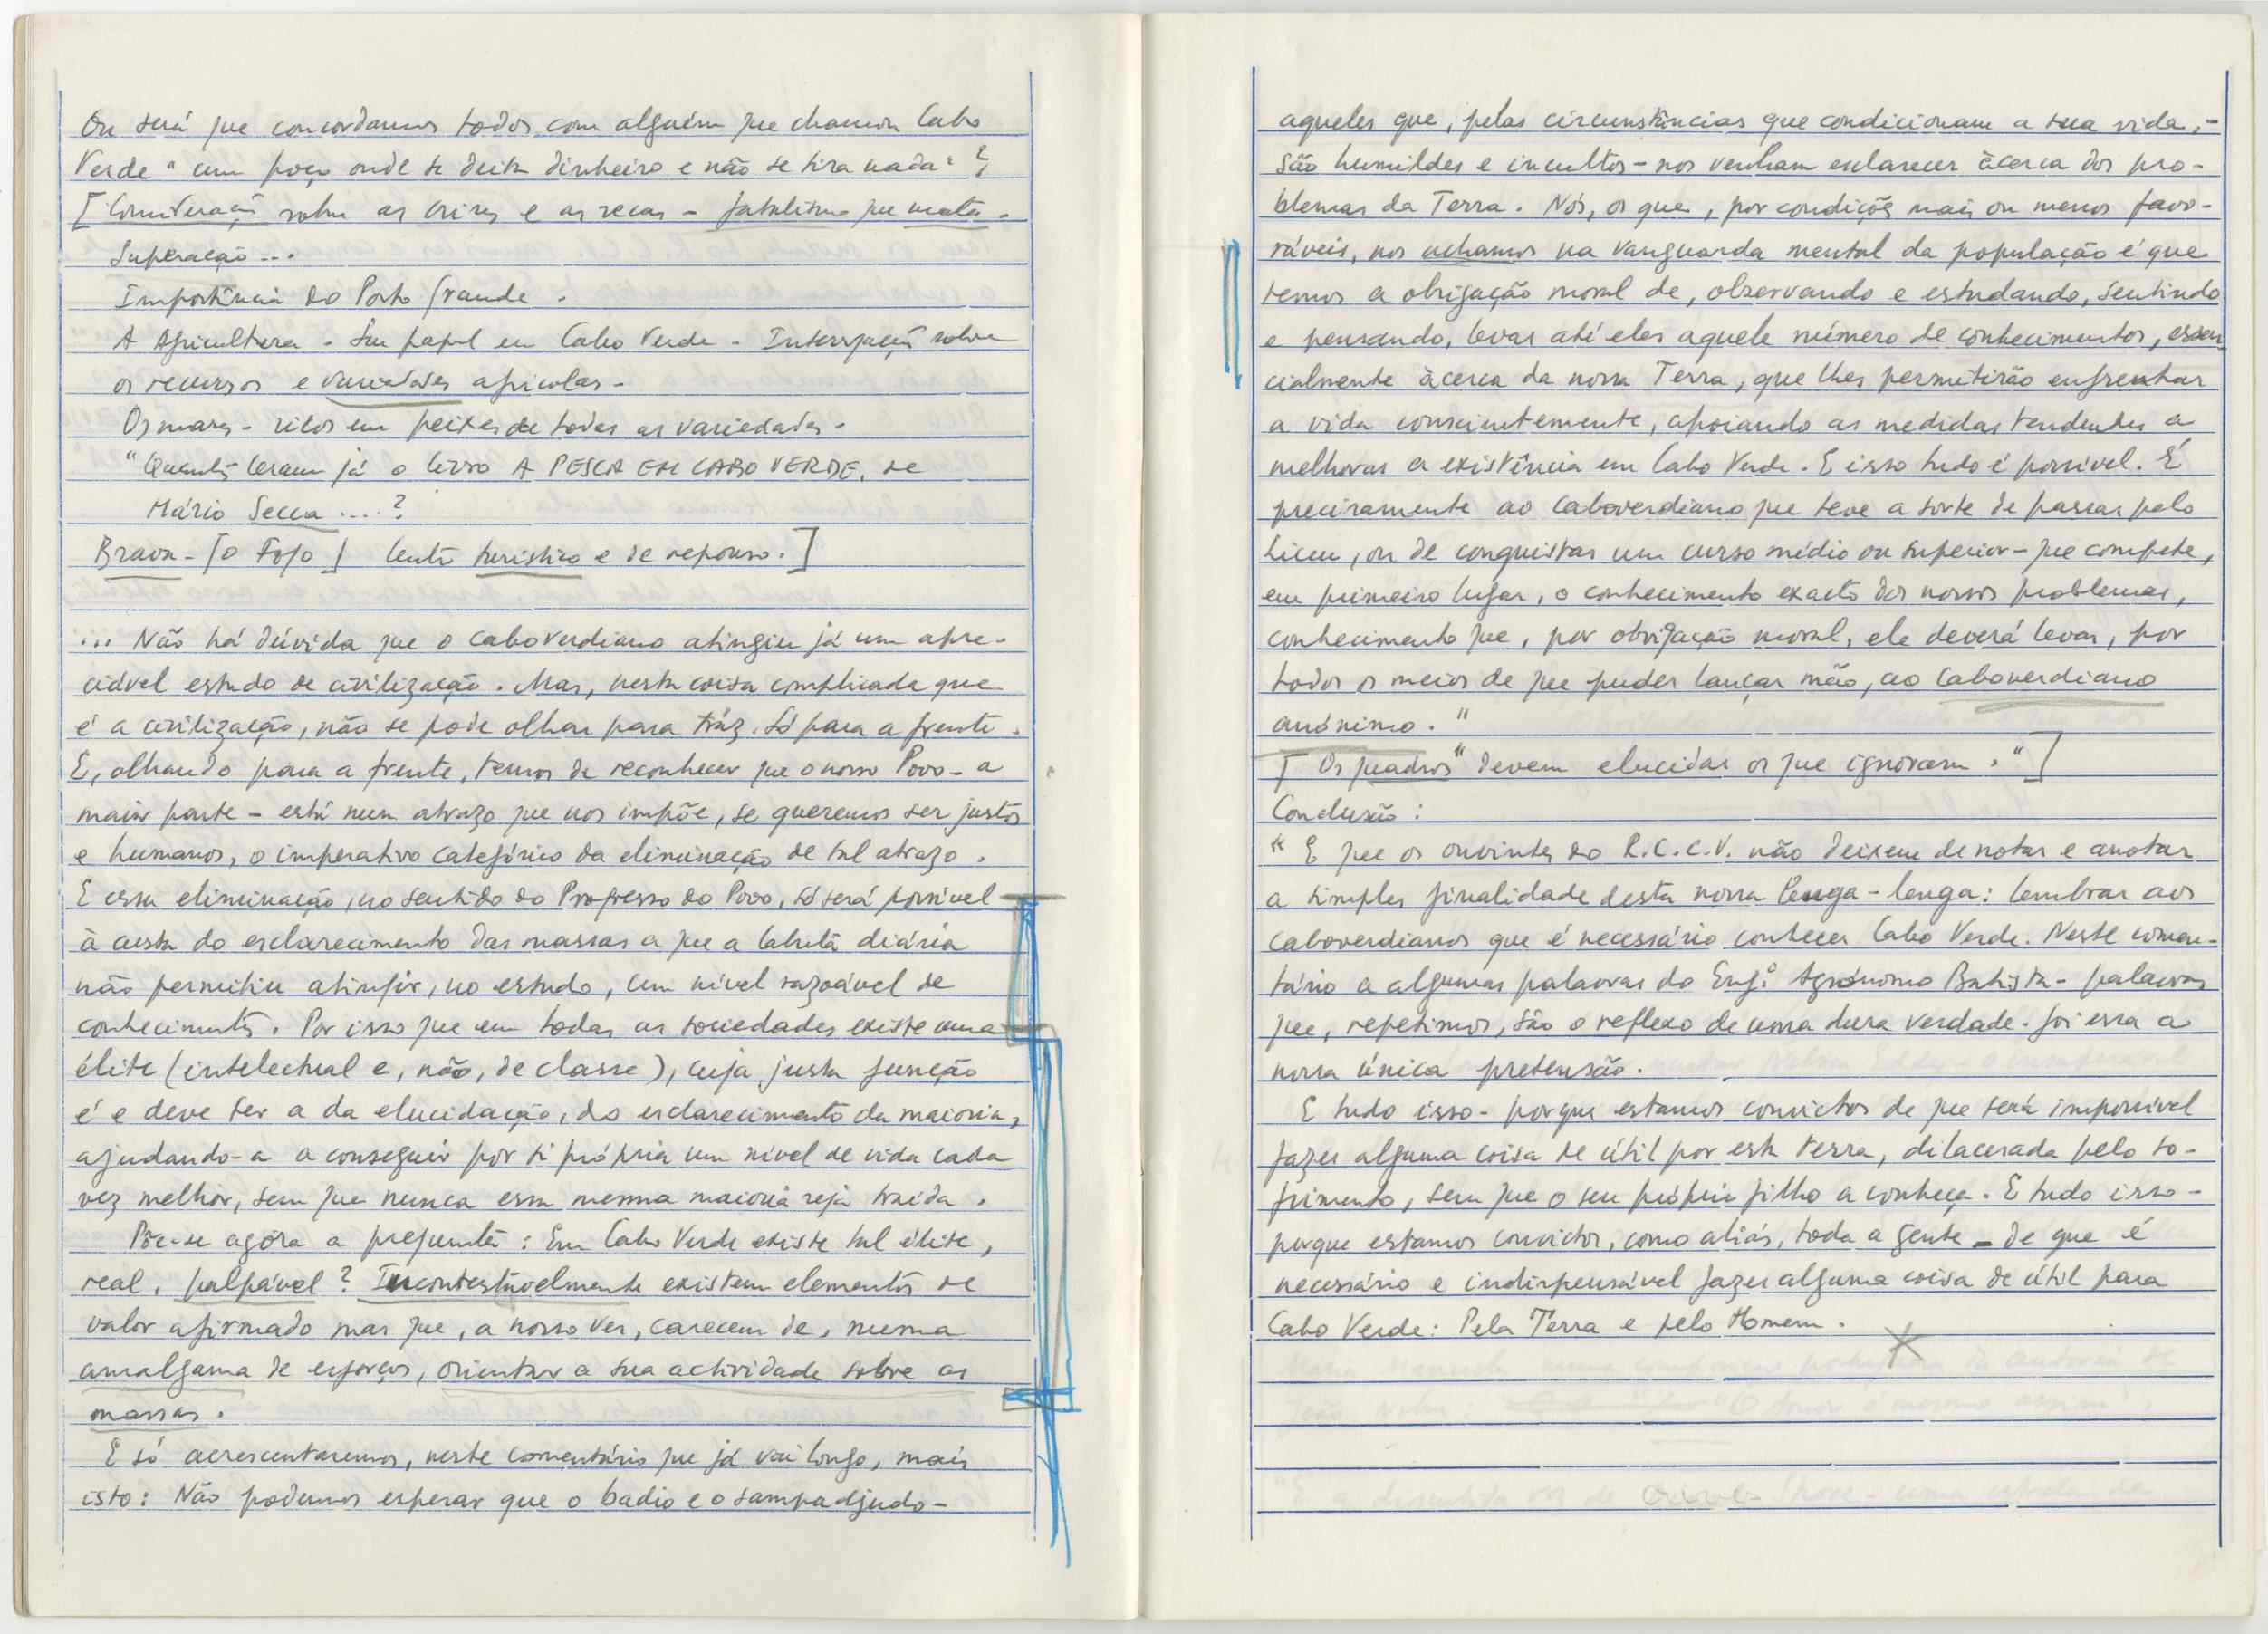 Ou será que concordamos todos com alguém que chamou Cabo
Verde "um poço onde se deita dinheiro e não se tira nada"?
[Consideração sobre as crises e as secas - fatalismo que mata.
Superação...
Importância do Porto Grande.
A Agricultura. Seu papel em Cabo Verde. Interrogação sobre
os recursos e variedades agrícolas.
Os mares - ricos em peixes de todas as variedades.
"Quantos leram já o livro A PESCA EM CABO VERDE, de
Mário Secca ....?
Brava - [o Fogo] Centro turístico e de repouso.]
... Não há dúvida que o caboverdiano atingiu já um apre-
ciável estado de civilização. Mas, nesta coisa complicada que
é a civilização, não se pode olhar para tráz. Só para a frente.
E, olhando para a frente, temos de reconhecer que o nosso Povo - a
maior parte - está num atrazo que nos impõe, se queremos ser justos
e humanos, o imperativo categórico da eliminação de tal atrazo.
E essa eliminação, no sentido do Progresso do Povo, só será possível
à custa do esclarecimento das massas a que a labuta diária
não permitiu atingir, no estudo, um nível razoável de
conhecimentos. Por isso que em todas as sociedades existe uma
élite (intelectual e, não, de classe), cuja justa função
é e deve ser a da elucidação, do esclarecimento da maioria,
ajudando-a a conseguir por si própria um nível de vida cada
vez melhor, sem que nunca essa mesma maioria seja traida.
Põe-se agóra a pregunta: Em Cabo Verde existe tal élite,
real, palpável? Incontestávelmente existem elementos de
valor afirmado mas que, a nosso ver, carecem de, numa
amalgama de esforços, orientar a sua actividade sobre as
massas.
E só acrescentaremos, neste comentário que já vai longo, mais
isto: Não podemos esperar que o badio e o sampadjudo -
aqueles que, pelas circunstâncias que condicionam a sua vida, -
são humildes e incultos - nos venham esclarecer àcerca dos pro-
blemas da Terra. Nós, os que, por condições mais ou menos favo-
ráveis, nos achamos na vanguarda mental da população é que
temos a obrigação moral de, observando e estudando, sentindo
e pensando, levar até eles aquele número de conhecimentos, essen-
cialmente àcerca da nossa Terra, que lhes permitirão enfrentar
a vida conscientemente, apoiando as medidas tendentes a
melhorar a existência em Cabo Verde. E isso tudo é possível. É
precisamente ao caboverdiano que teve a sorte de passar pelo
Liceu, ou de conquistar um curso médio ou superior - que compete,
em primeiro lugar, o conhecimento exacto dos nossos problemas,
conhecimento que, por obrigação moral, ele deverá levar, por
todos os meios de que puder lançar mão, ao caboverdiano
anónimo."
[Os quadros "devem elucidar os que ignoram."]
Conclusão:
"E que os ouvintes do R.C.C.V. não deixem de notar e anotar
a simples finalidade desta nossa lenga-lenga: lembrar aos
caboverdianos que é necessário conhecer Cabo Verde. Neste comen-
tário a algumas palavras do Engº Agrónomo Batista - palavras
que, repetimos, são o reflexo de uma dura verdade. foi essa a
nossa única pretensão.
E tudo isso - porque estamos convictos de que será impossível
fazer alguma coisa de útil por esta terra, dilacerada pelo so-
frimento, sem que o seu próprio filho a conheça. E tudo isso -
porque estamos convictos, como aliás, toda a gente - de que é
necessário e indispensável fazer alguma coisa de útil para
Cabo Verde: Pela Terra e pelo Homem.